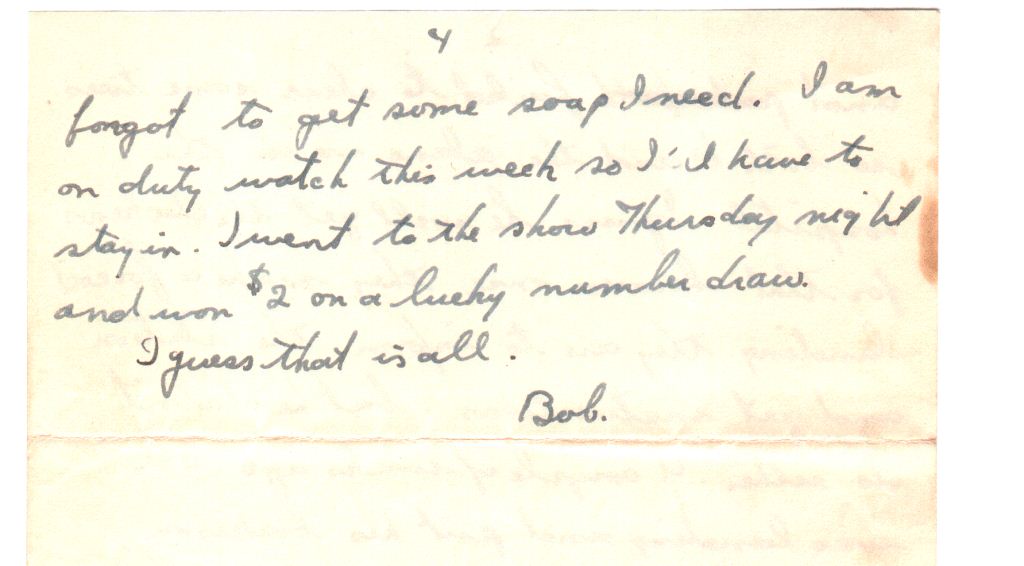 4
forgot to get some soap I need. I am
on duty watch this week so I'll have to
stay in. I went to the show Thursday night
and won $2 on a lucky number draw.
I guess that is all.
Bob.